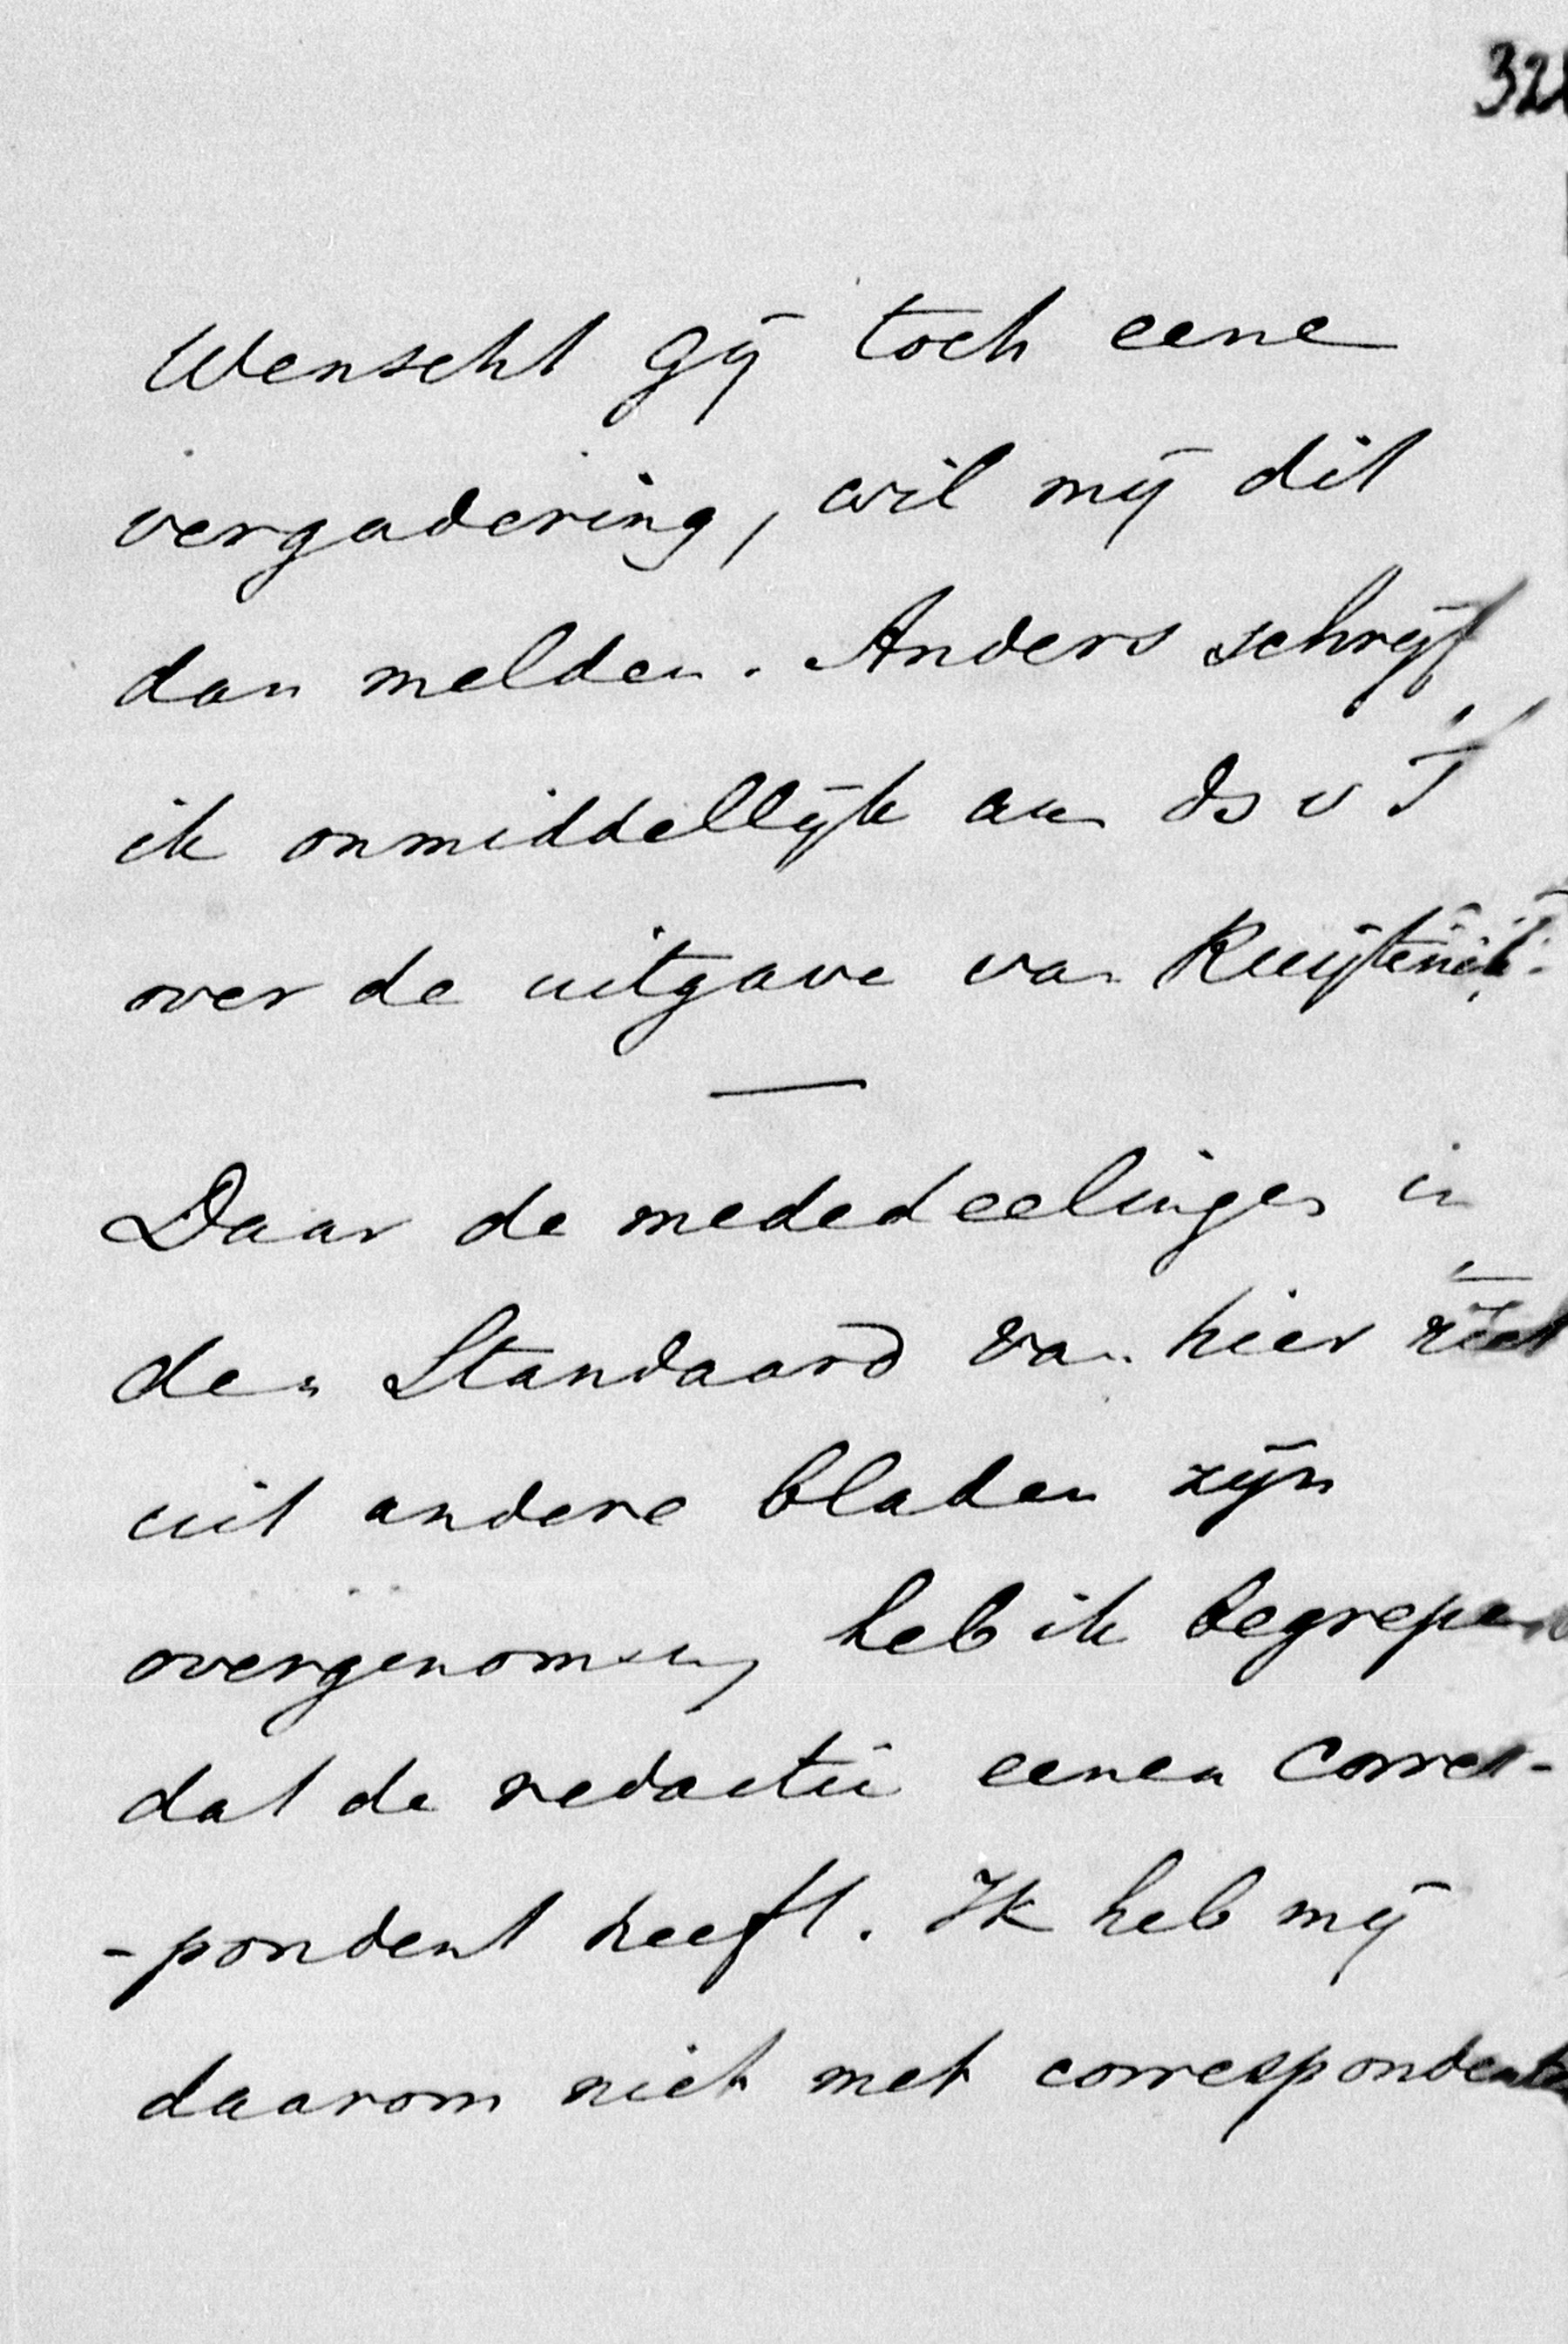 32
Wenscht Gij toch eene
vergadering, wil mij dit
dan melden. Anders schrijf
ik onmiddellijk aan Ds v T
over de uitgave van
Daar de mededeelingen in
den Standaard van hier niet
uit andere bladen zijn
overgenomen, heb ik begrepen
dat de redactie eenen corres-
-pondent heeft. Ik heb mij
daarom niet met